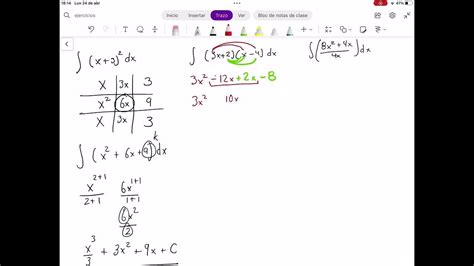 16:14 Lun 24 de abr
47%
ejercicios
Trazo
Bloc de notas de clase
∫ (x+3)² dx
X | 3x | 3
x² | 6x | 9
X | 3x | 3
∫ (x² + 6x + 9) dx
k
x^(2+1)/(2+1) 6x^(1+1)/(1+1)
6x²/2
x³/3 + 3x² + 9x + C
∫ (3x+2)(x-4) dx
3x² - 12x + 2x - 8
3x² 10x
∫ ((8x² + 4x)/4x) dx